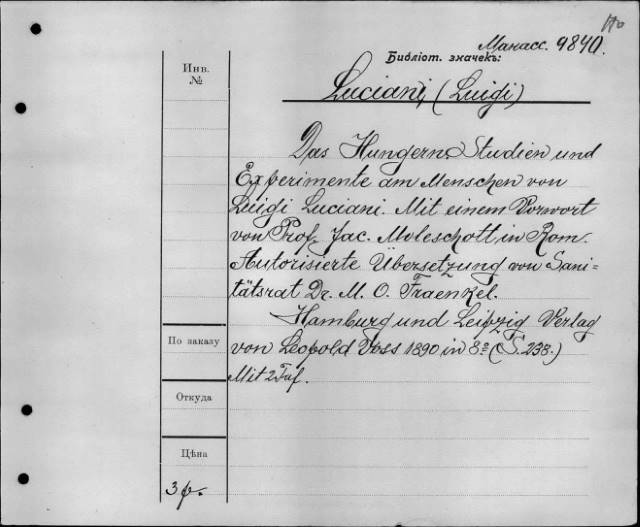 Манасс. 9840.
Библіот. значекъ:
Инв.
№
Luciani, (Luigi)
Das Hungern. Studien und
Experimente am Menschen von
Luigi Luciani. Mit einem Vorwort
von Prof. Jac. Moleschott in Rom.
Autorisierte Übersetzung von Sani=
tätsrat Dr. M. O. Fraenkel.
Hamburg und Leipzig Verlag
von Leopold Voss 1890 in 8º (S. 238.)
Mit 2 Taf.
По заказу
Откуда
Цѣна
3 р.